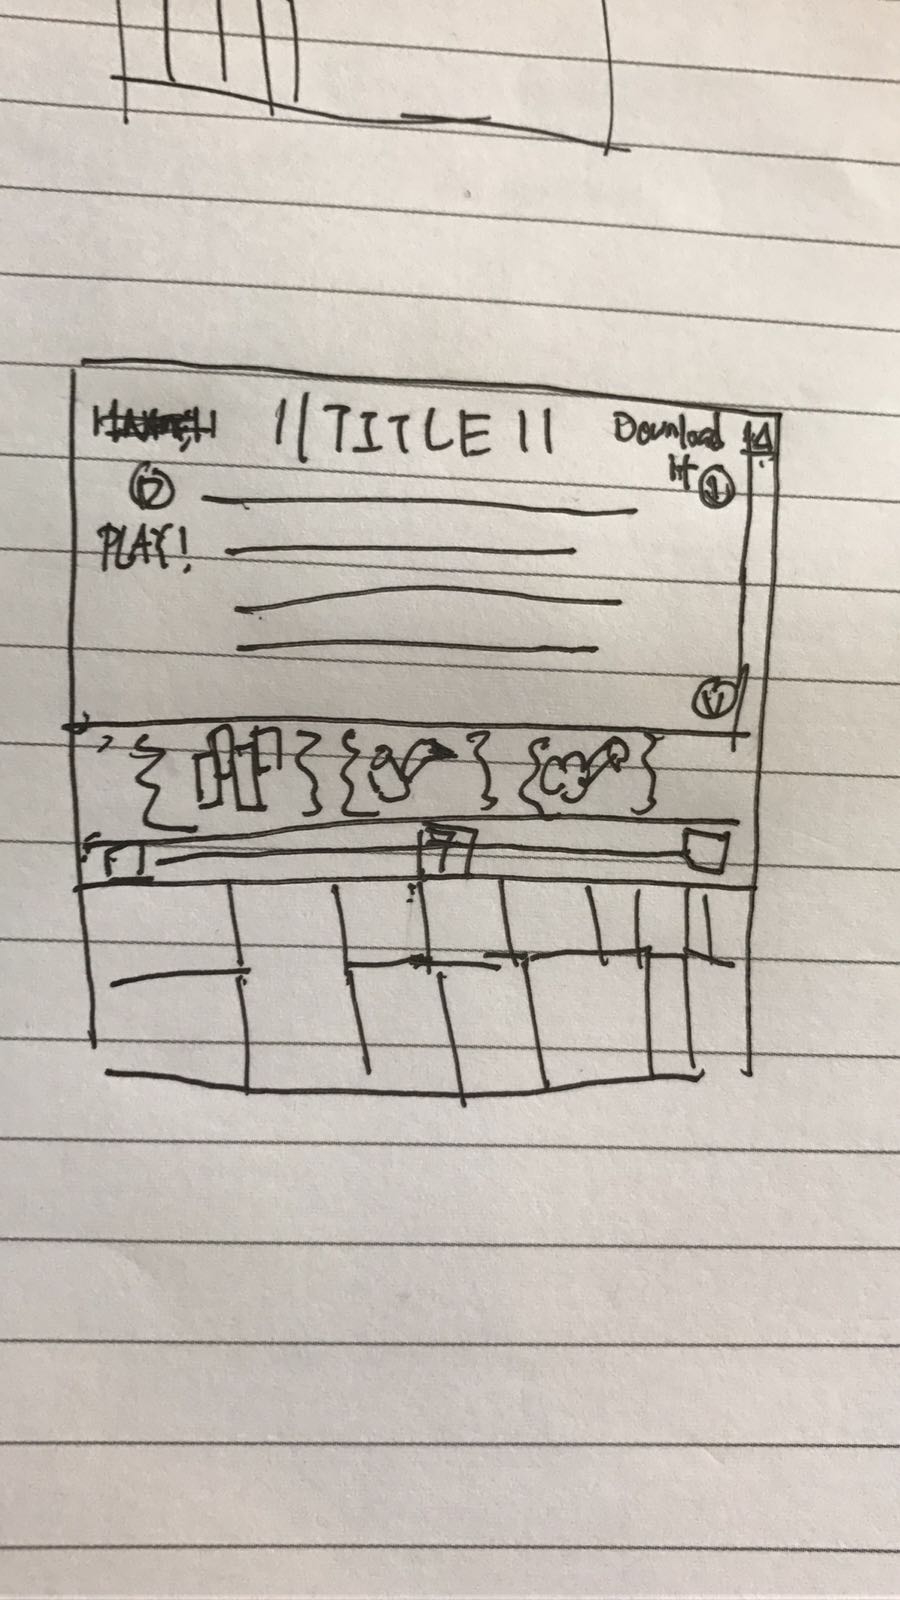 || TITLE ||
Download
It
PLAY!